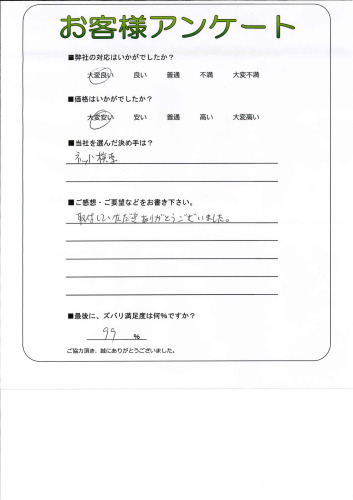 お客様アンケート
■弊社の対応はいかがでしたか？
大変良い 良い 普通 不満 大変不満
■価格はいかがでしたか？
大変安い 安い 普通 高い 大変高い
■当社を選んだ決め手は？
ネット検索
■ご感想・ご要望などをお書き下さい。
取付していただきありがとうございました。
■最後に、ズバリ満足度は何％ですか？
99 %
ご協力頂き、誠にありがとうございました。